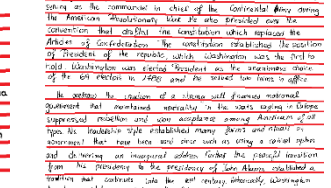 serving as the commander in chief of the Continental Army during
the American Revolutionary War. He also presided over the
convention that drafted the Constitution which replaced the
Articles of Confederation. The constitution established the position
of President of the republic, which Washington was the first to
hold. Washington was elected President as the unanimous choice
of the 69 electors in 1788, and he served two terms in office
He oversaw the creation of a strong well financed national
government that maintained neutrality in the wars raging in Europe
suppressed rebellion and won acceptance among Americans of all
types. His leadership style established many forms and rituals in
government that have been used since such as using a cabinet system
and delivering an inaugural address. Further the peaceful transition
from his presidency to the presidency of John Adams established a
tradition that continues into the 21st century. Washington